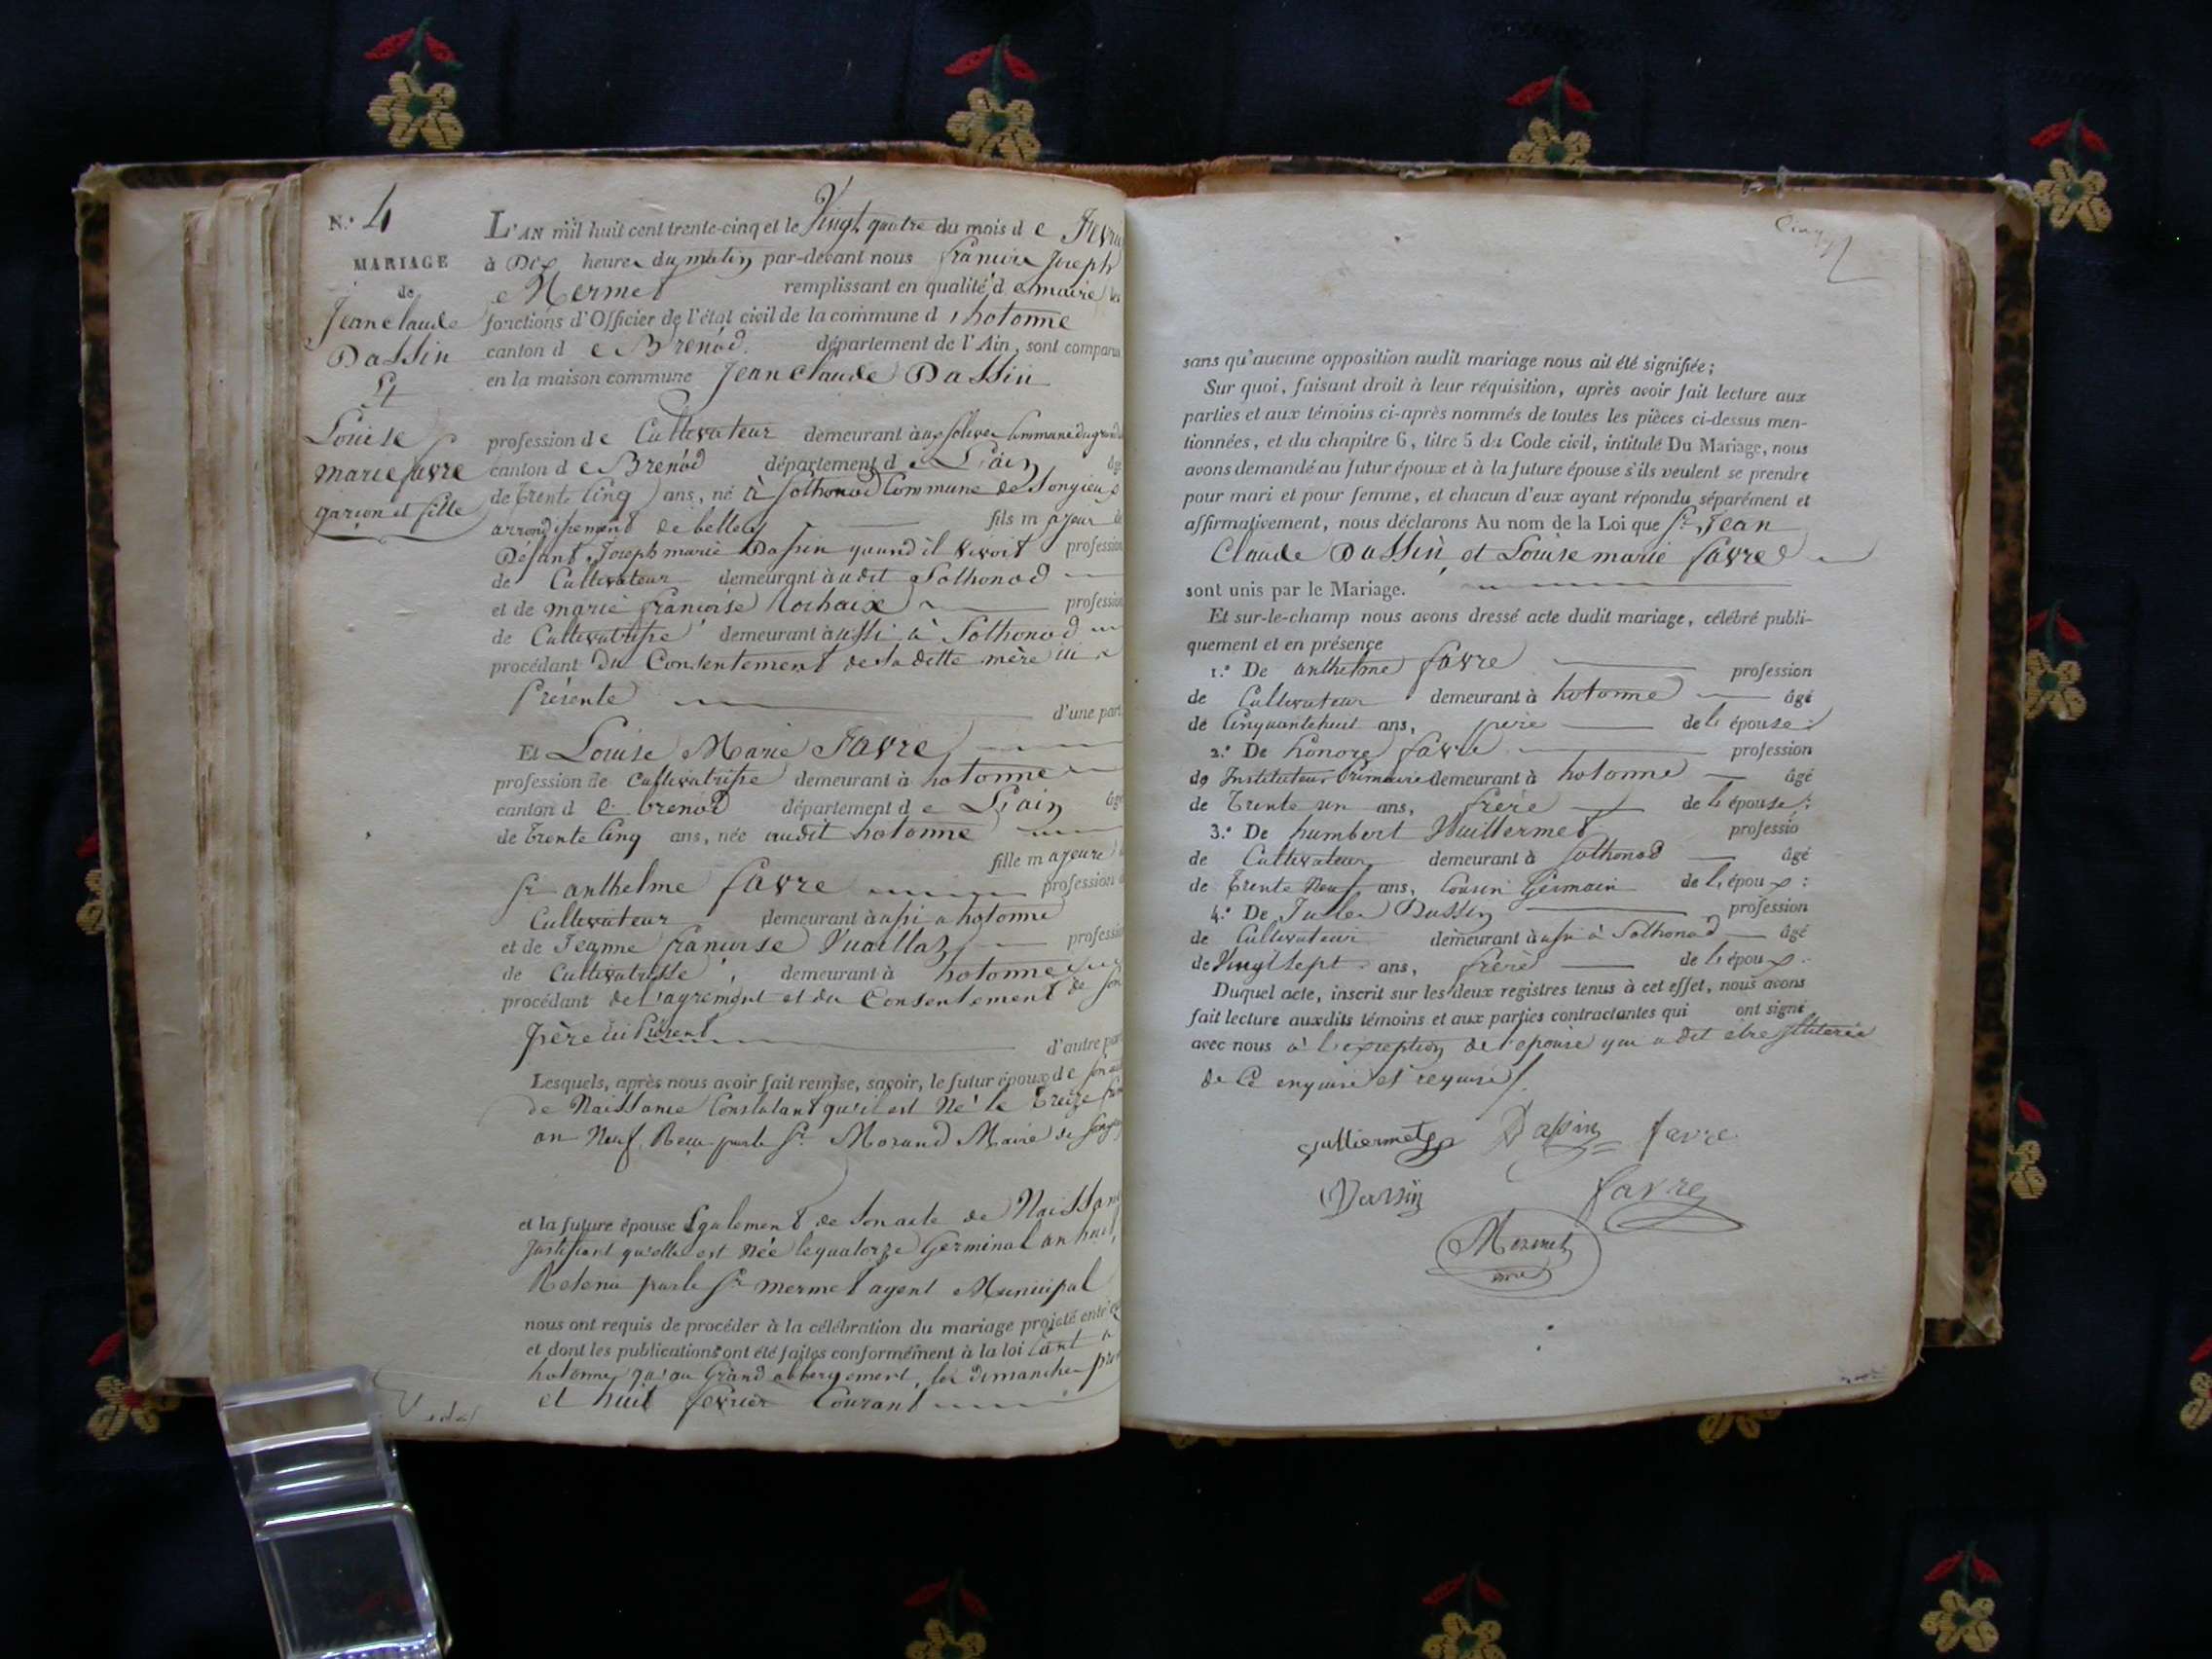 N.° 4
MARIAGE
de
Jean claude
Dassin
Et
Louise
marie favre
garçon et fille
L'AN mil huit cent trente-cinq et le Vingt quatre du mois d e
à Dix heures du matin par-devant nous françois Joseph
Mermet remplissant en qualité d e maire les
fonctions d'Officier de l'état civil de la commune d 'hotonne
canton d e Brenod. département de l'Ain, sont comparus
en la maison commune Jean Claude Dassin
profession de Cultivateur demeurant à Commune du grand
canton d e Brenod département d e L'ain âgé
de trente Cinq ans, né à Sothonod Commune de Songieux
arrondissement de belley fils majeur de
Défunt Joseph marie Dassin quand il vivoit profession
de Cultivateur demeurant audit Sothonod
et de marie françoise Rochaix profession
de Cultivatrisse demeurant aussi à Sothonod
procédant du Consentement de sadette mère ici
Présente
d'une part
Et Louise Marie Favre
profession de Cultivatrisse demeurant à hotonne
canton d e brenod département d e L'ain âgé
de trente Cinq ans, née audit hotonne
fille majeure
Sr anthelme favre profession
Cultivateur demeurant aussi a hotonne
et de Jeanne françoise Vuaillaz profession
de Cultivatrisse, demeurant à hotonne
procédant de l'agrement et du Consentement de son
Père ici Present
d'autre part
Lesquels, après nous avoir fait remise, savoir, le futur époux de son
de Naissance Constatant qu'il est Né le treize
an Neuf, Recu par le Sr Morand Maire de
et la future épouse Egalement de son acte de
Justifiant qu'elle est Née le quatorze Germinal an huit,
Retenu par le Sr mermet agent Municipal
nous ont requis de procéder à la célébration du mariage projeté entr'eux
et dont les publications ont été faites conformément à la loi tant à
hotonne qu'au Grand abbergement, les dimanches
et huit fevrier Courant
sans qu'aucune opposition audit mariage nous ait été signifiée;
Sur quoi, faisant droit à leur réquisition, après avoir fait lecture aux
parties et aux témoins ci-après nommés de toutes les pièces ci-dessus men-
tionnées, et du chapitre 6, titre 5 du Code civil, intitulé Du Mariage, nous
avons demandé au futur époux et à la future épouse s'ils veulent se prendre
pour mari et pour femme, et chacun d'eux ayant répondu séparément et
affirmativement, nous déclarons Au nom de la Loi que Sr. Jean
Claude Dassin, et Louise marie favre
sont unis par le Mariage.
Et sur-le-champ nous avons dressé acte dudit mariage, célébré publi-
quement et en présence
1.° De anthelme favre profession
de Cultivateur demeurant à hotonne âgé
de Cinquante huit ans, père de l'épouse:
2.° De honoré favre profession
de Instituteur Primaire demeurant à hotonne âgé
de trente un ans, frere de l'épouse;
3.° De humbert Vuillermet professio
de Cultivateur demeurant à Sothonod âgé
de trente Neuf ans, Cousin Germain de l'époux:
4.° De Jules Dassin profession
de Cultivateur demeurant aussi à Sothonod âgé
de Vingt sept ans, frère de l'époux.
Duquel acte, inscrit sur les deux registres tenus à cet effet, nous avons
fait lecture auxdits témoins et aux parties contractantes qui ont signé
avec nous à l'exception de l'épouse qui a dit être illiterée
de Ce enquise et requise.
Dassin favre
Dassin favre
Mermet